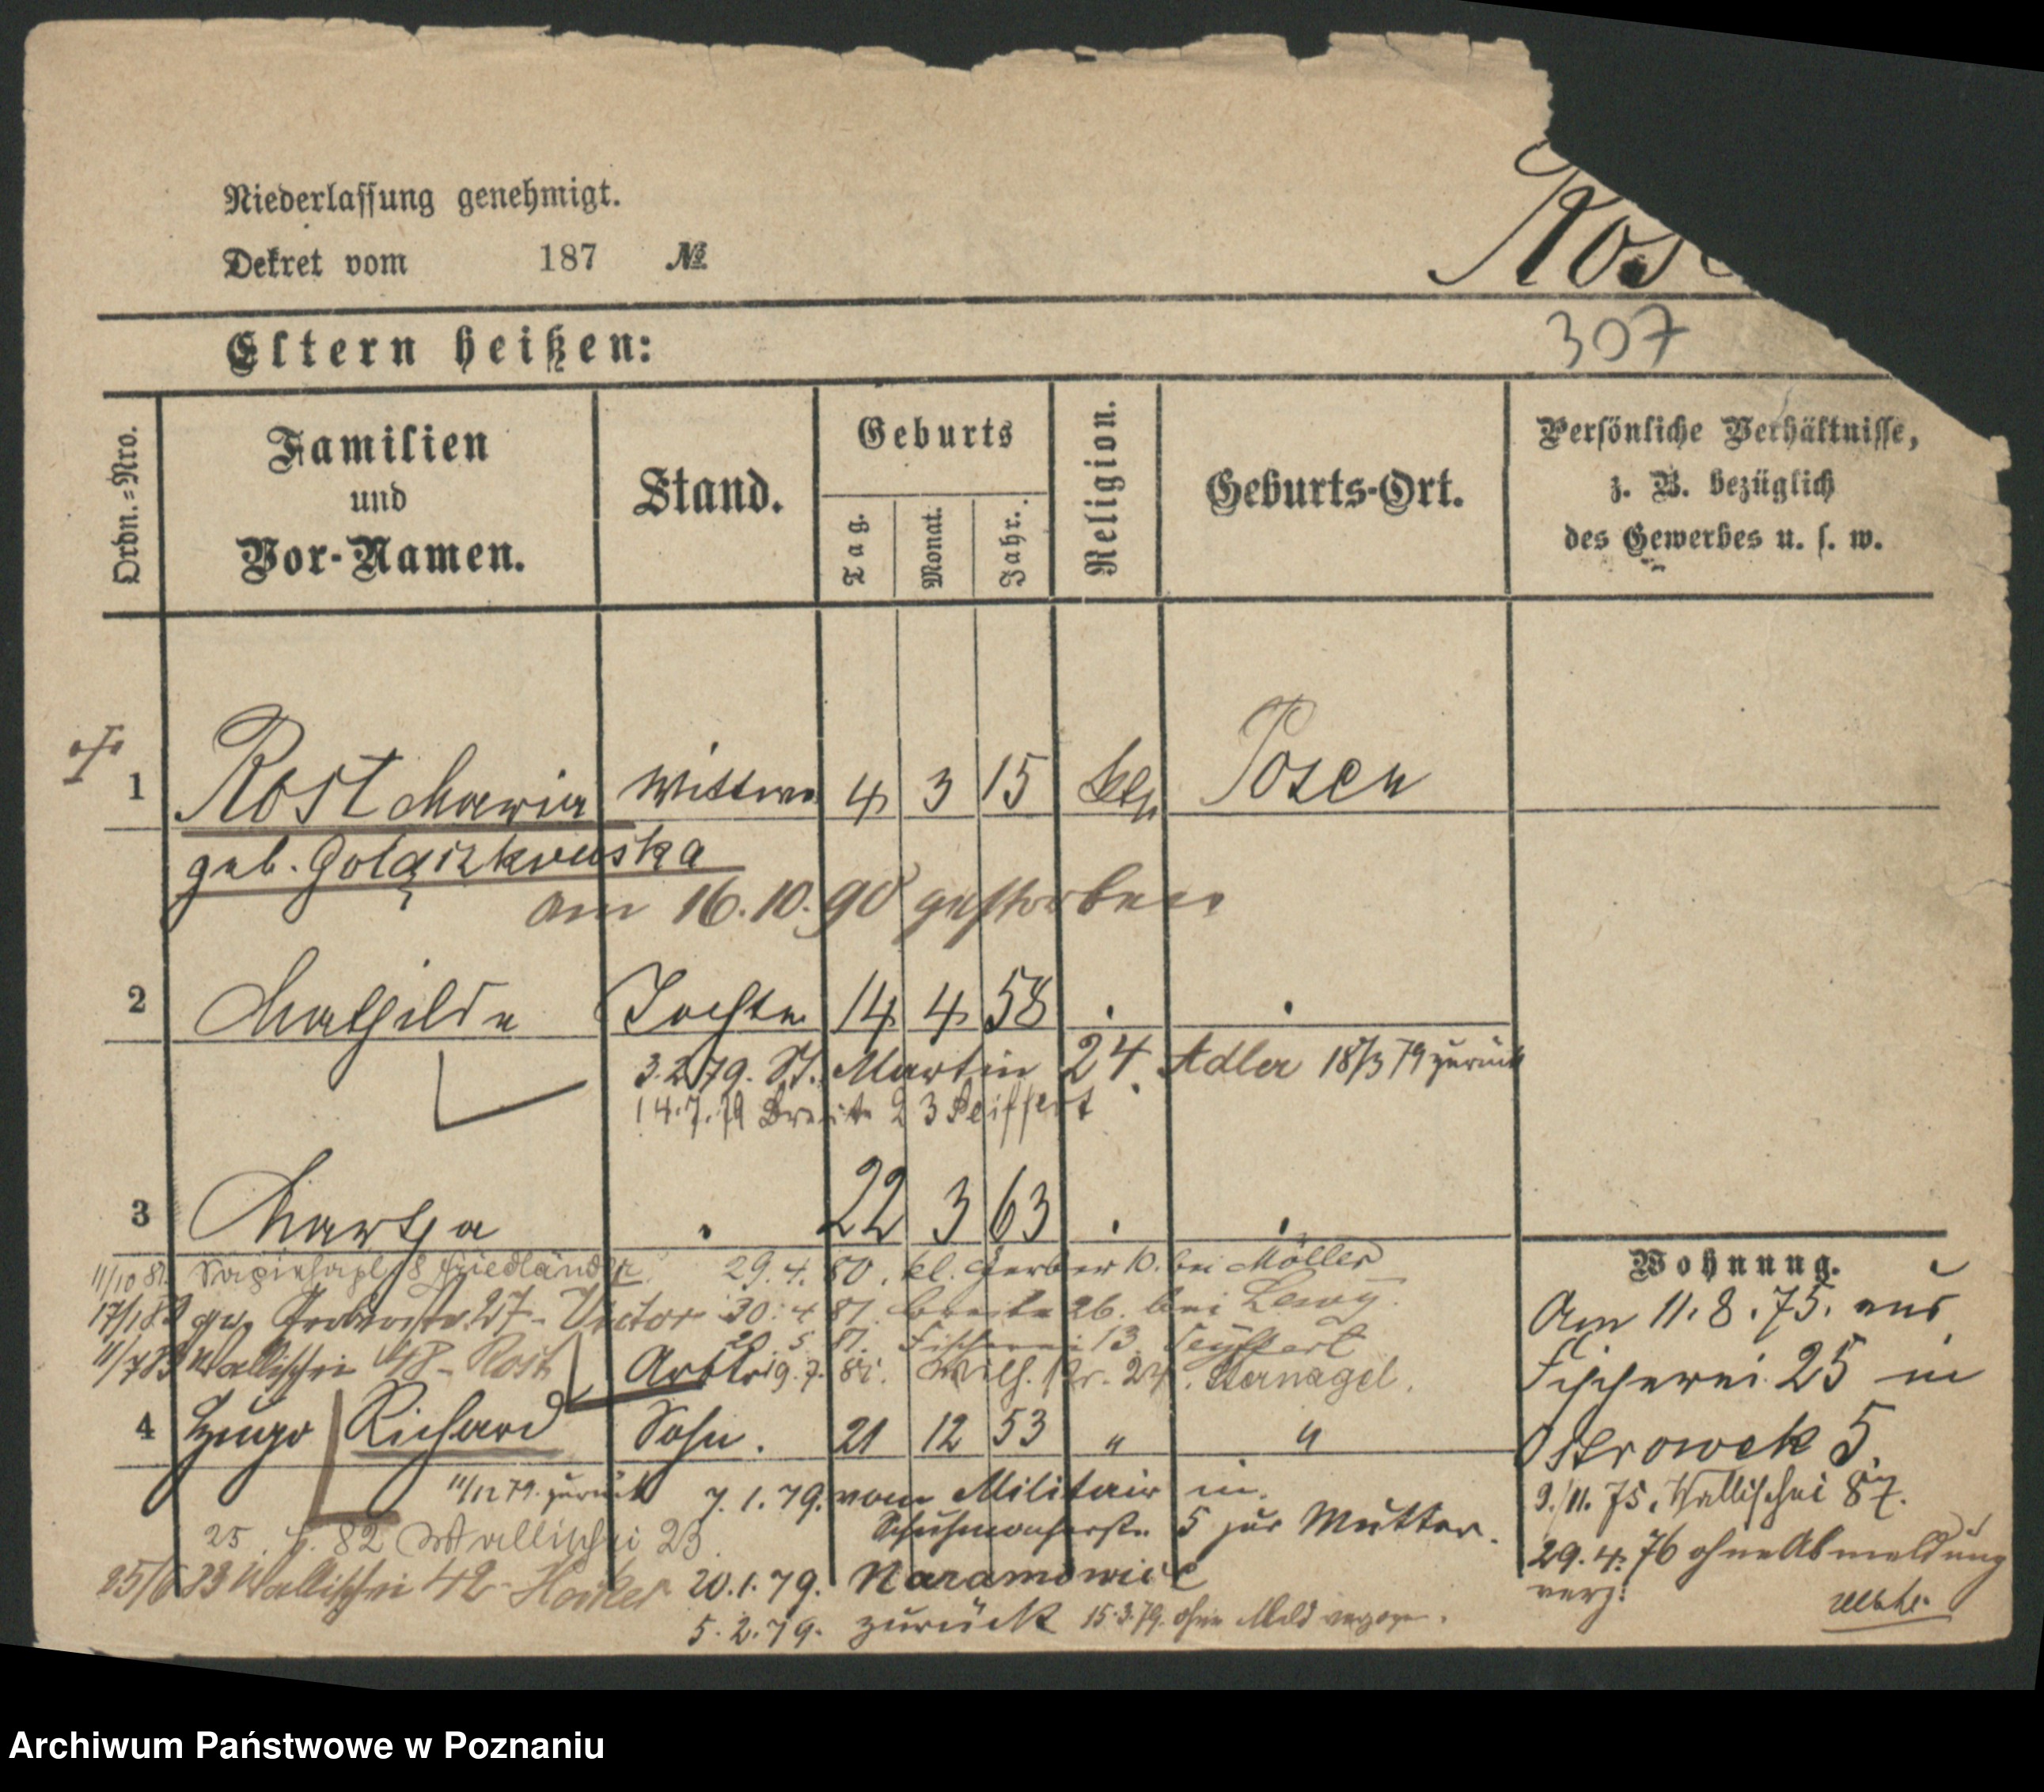 Niederlassung genehmigt.
Dekret vom 187 №
Ros
Eltern heißen:
307
Ordn.=Nro.
Familien
und
Vor-Namen.
Stand.
Geburts
Tag.
Monat.
Jahr.
Religion.
Geburts-Ort.
Persönliche Verhältnisse,
z. B. bezüglich
des Gewerbes u. s. w.
1 Rost Maria Wittwe 4 3 15 Posen
geb.
am 16.10.90 gestorben
2 Mathilde Tochter 14 4 58 . .
3.2.79. St. Martin 24. Adler 18/3 79 zurück
14.7.79 Breite 23 Seiffert
3 Martha . 22 3 63 . .
11/10 81. 18 Friedländer 29.4.80. kl. Gerber 10. bei Möller
17/1 83 gr. Gerberstr. 27 - Victor 30.4 81. Breite 26. bei Lewy.
20 5. 81. Fischerei 13. Seyffert
11/7 83 Wallischei 48 - Rost 19.7. Wilh. 24. Sternagel.
4 Hugo Richard Sohn. 21 12 53 " "
11/12 79. zurück 7.1.79. vom Militair in
Schuhmacherstr. 5 zur Mutter.
25. 82 Wallischei 23.
25/6 83 Wallischei 42 - 20.1.79. Naramowice
5.2.79. zurück 15.3.79. ohne Meld verzogen.
Wohnung.
Am 11.8.75. aus
Fischerei 25 in
Ostrowek 5.
9./11. 75. Wallischei 87.
29.4.76 ohne Abmeldung
verz.
Archiwum Państwowe w Poznaniu